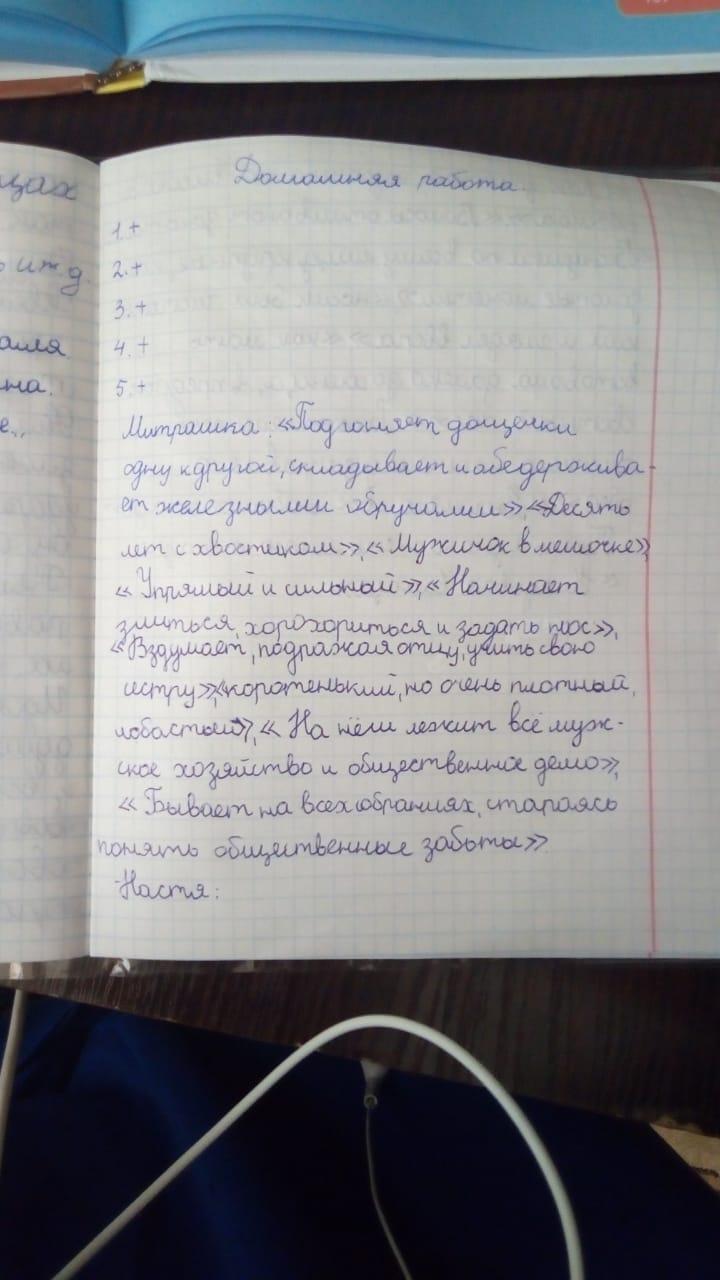 цах
Домашняя работа
1.+
2.+
ит.д.
3.+
4.+
5.+
Митрашка: «Подгоняет дощечки
одну к другой, складывает и обедержива-
ет железными обручами», «Десять
лет с хвостиком», «Мужичок в мешочке»,
«Упрямый и сильный», «Начинает
злиться, хорохориться и задать нос»,
«Вздумает, подражая отцу, учить свою
сестру», «коротенький, но очень плотный,
лобастый», «На нём лежит всё муж-
ское хозяйство и общественное дело»,
«Бывает на всех обраниях, стараясь
понять общественные заботы»
Настя: